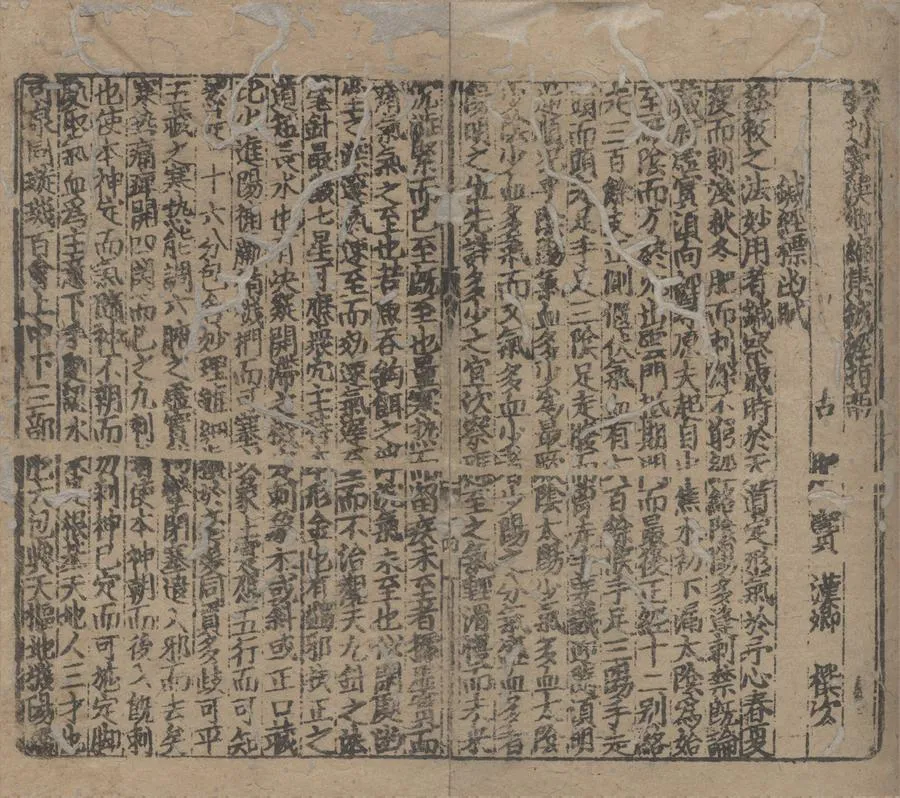 刊竇漢卿編集鍼經指南
古　肥　竇　漢卿　撰次
鍼經標幽賦
拯救之法妙用者鍼察歲時於天道定形氣於予心春夏
瘦而刺淺秋冬肥而刺深不窮經絡陰陽多逢刺禁既論
藏府虛實須向經尋原夫起自中焦水初下漏太陰為始
至厥陰而方終穴出雲門抵期門而最後正經十二別絡
走三百餘支正側偃伏氣血有六百餘候手足三陽手走
頭而頭走足手足三陰足走腹而胸走手要識迎隨須明
逆順況乎陰陽氣血多少為最厥陰太陽少氣多血太陰
少陰少血多氣而又氣多血少者少陽之分氣盛血多者
陽明之位先詳多少之宜次察應至之氣輕滑慢而未來
沉澁緊而已至既至也量寒熱而留疾未至者據虛實而
痏氣氣之至也若魚吞鈎餌之浮沉氣未至也似閑處幽
堂之深邃氣速至而効速氣遲至而不治觀夫九針之法
毫針最微七星可應衆穴主持本形金也有蠲邪扶正之
道短長水也有決凝開滯之機定刺象木或斜或正口藏
比火進陽補羸循機捫而可塞以象土實應五行而可知
然是一寸六分包含妙理雖細擬於毫髮同貫多歧可平
五藏之寒熱能調六腑之虛實拘攣閉塞遣八邪而去矣
寒熱痛痺開四關而已之凡刺者使本神朝而後入既刺
也使本神定而氣隨神不朝而勿刺神已定而可施定脚
處取氣血為主意下手處認水木是根基天地人三才也
湧泉同璇璣百會上中下三部也大包與天樞地機陽蹻